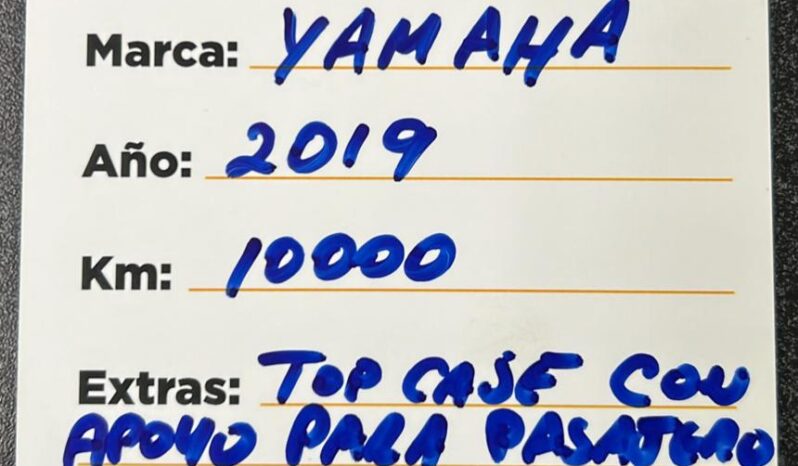 Marca: YAMAHA
Año: 2019
Km: 10000
Extras: TOP CASE CON
APOYO PARA PASAJERO